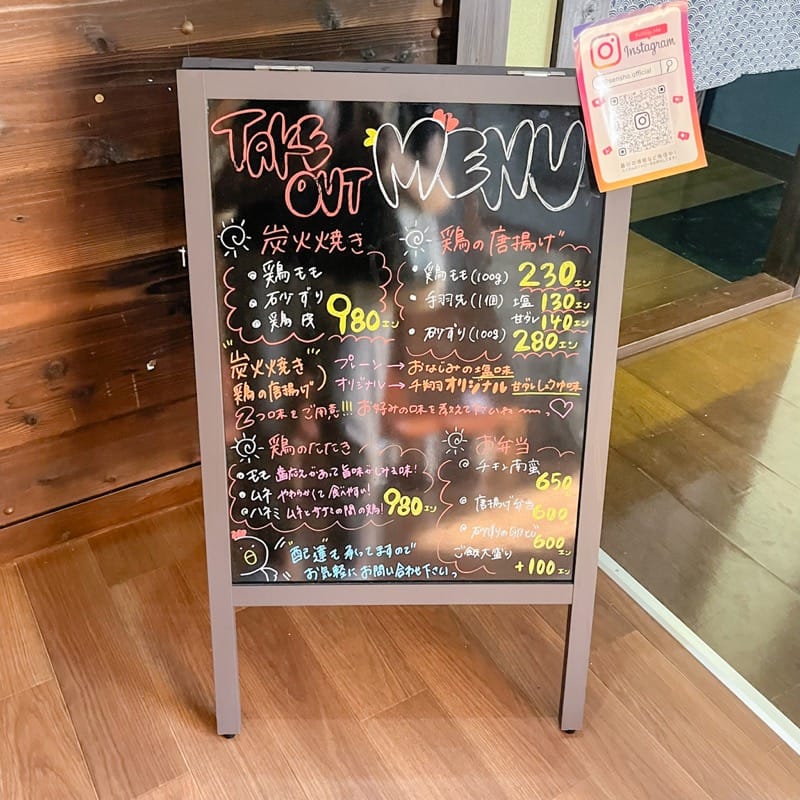 TAKE OUT
MENU
Follow Me
Instagram
sensho.official
炭火焼き
鶏もも
砂ずり
鶏皮
980エン
鶏の唐揚げ
鶏もも(100g) 230エン
手羽先(1個) 塩 130エン
甘ダレ 140エン
砂ずり(100g) 280エン
"炭火焼き"
鶏の唐揚げ
プレーン→おなじみの塩味
オリジナル→千翔オリジナル甘ダレしょうゆ味
2つ味をご用意!!! お好みの味を教えてくださいね〜っ♡
鶏のたたき
もも 歯応えがあって旨味がしみる味!
ムネ やわらかくて食べやすい!
ハネミ ムネとササミの間の鶏!
980エン
お弁当
チキン南蛮
650
唐揚げ弁当
600
砂ずりの
600エン
ご飯大盛り
+100エン
"配達"も承ってますので
お気軽にお問い合わせ下さいっ